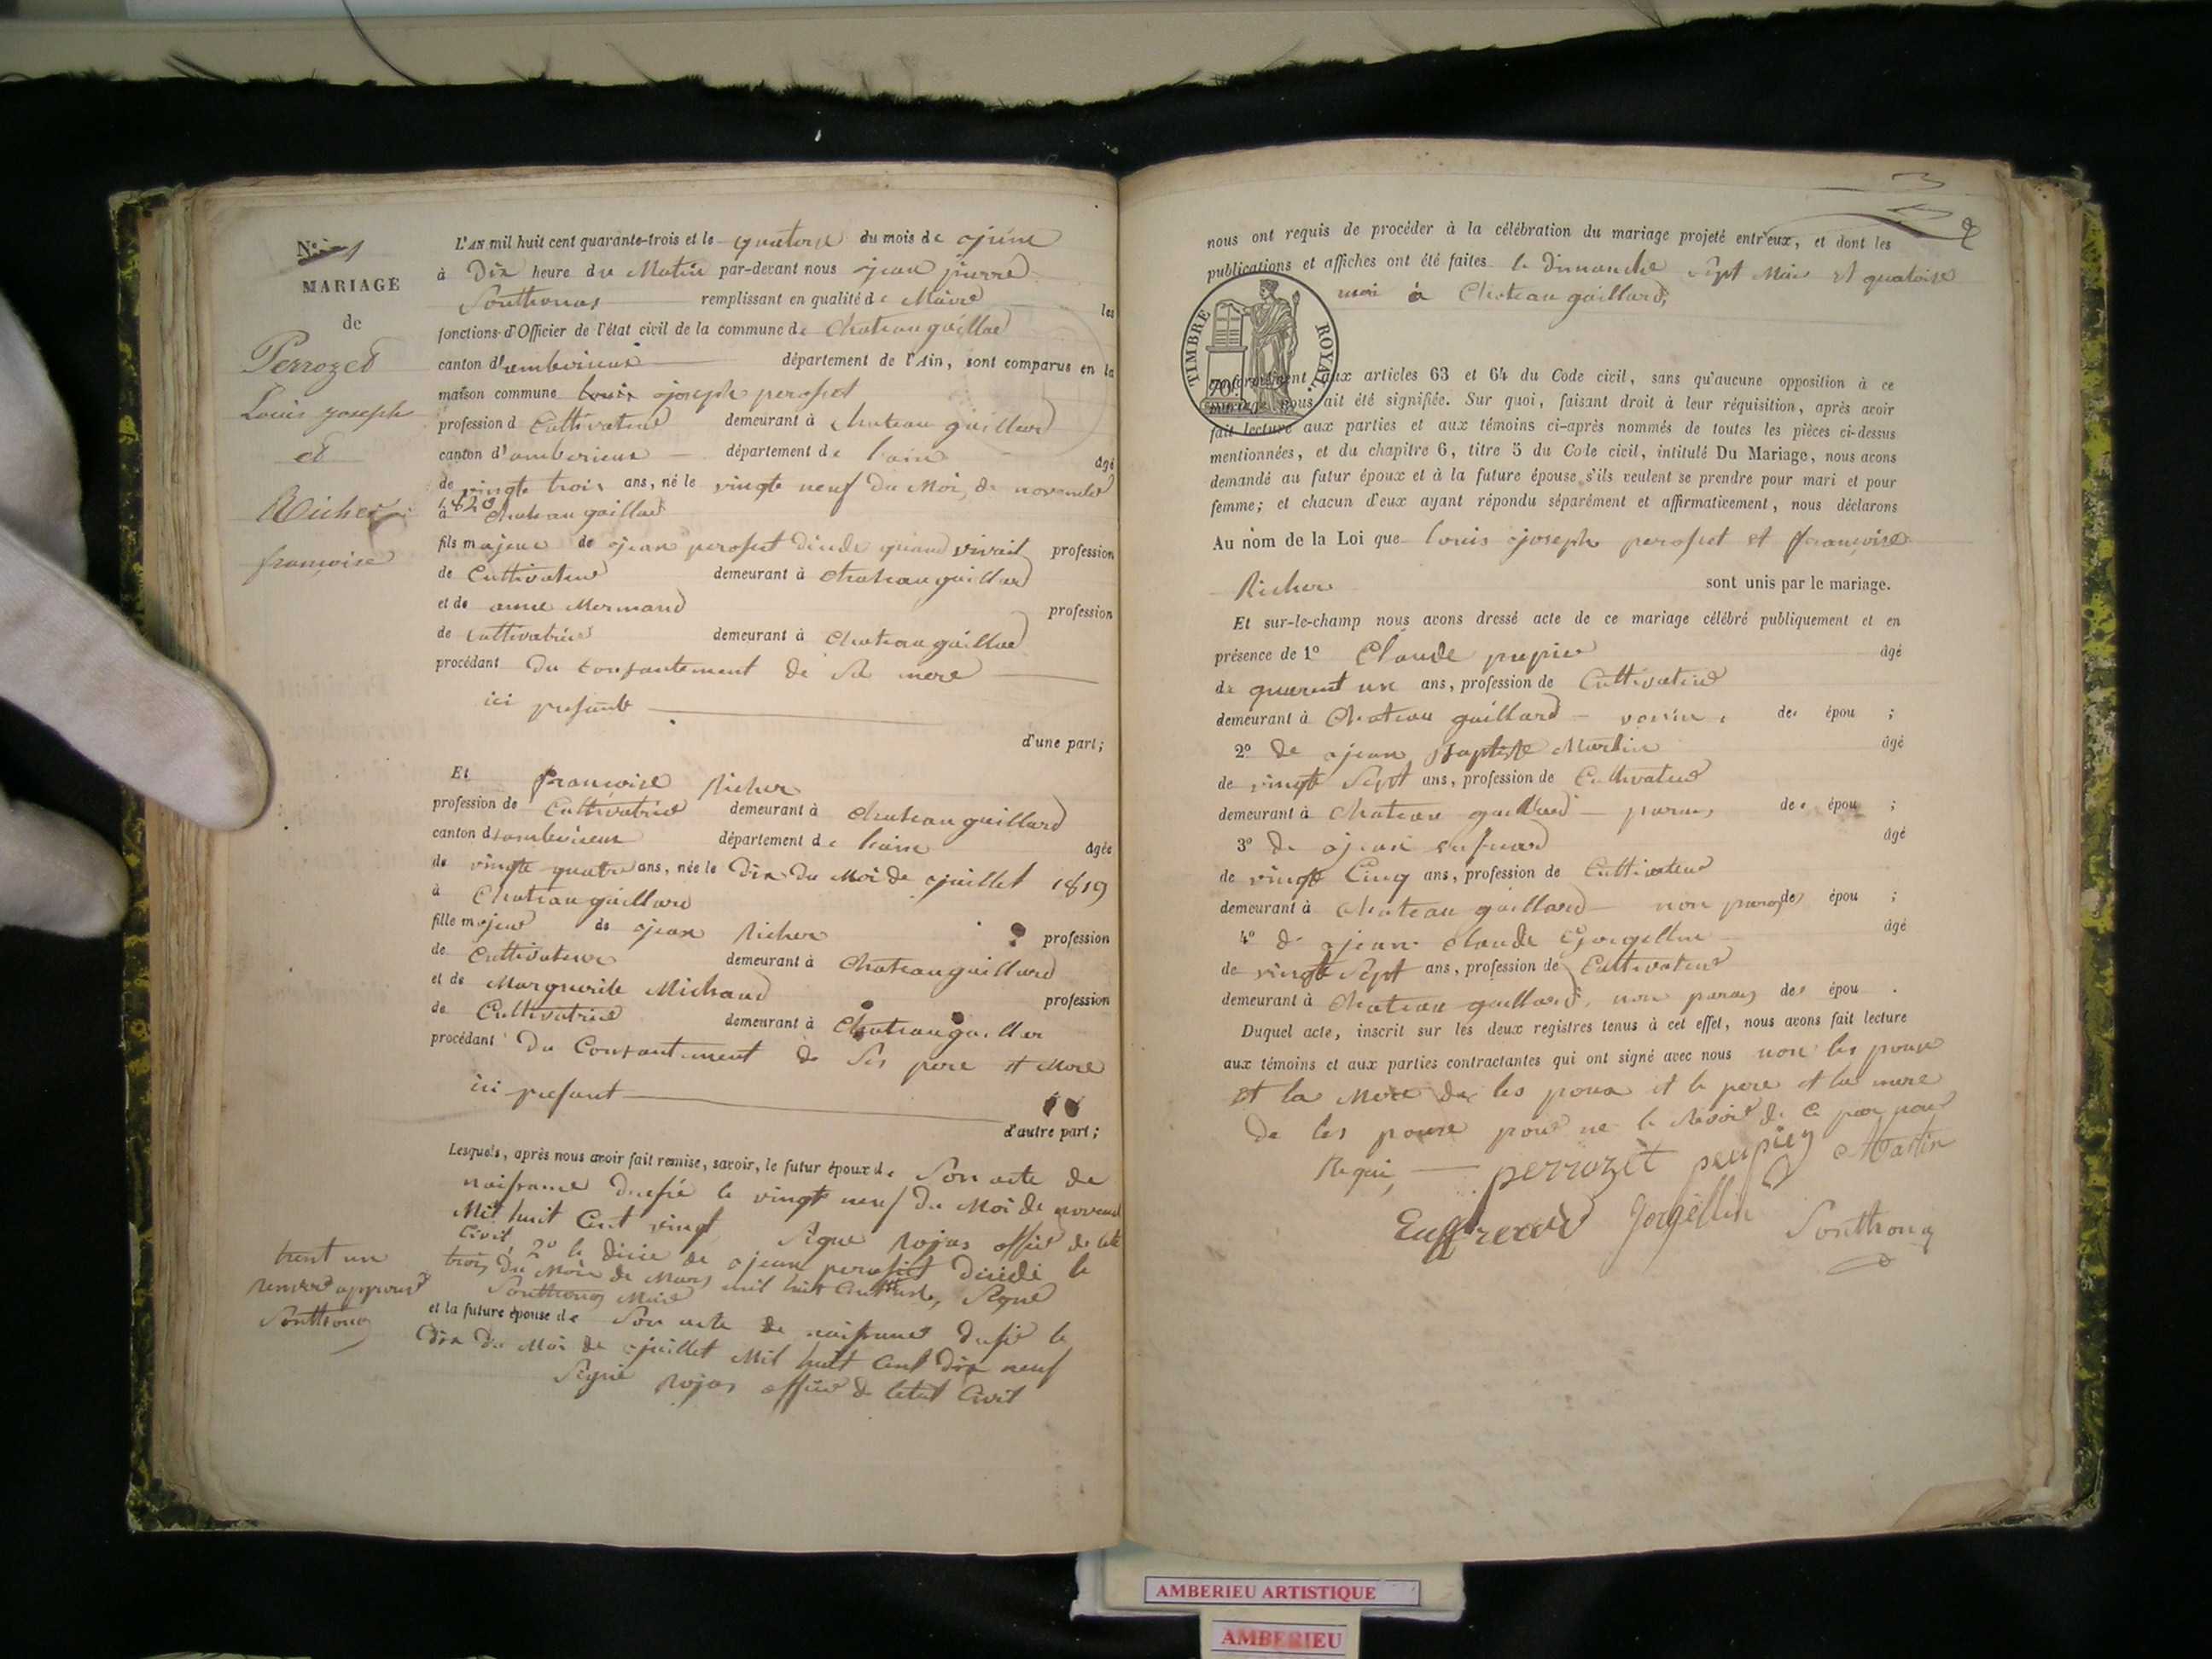 N° 1
MARIAGE
de
Perrozet
Louis joseph
et
Richer
françoise
L'AN mil huit cent quarante-trois et le quatorse du mois de juin
à Dix heure du Matin par-devant nous jean pierre
Ponthonas remplissant en qualité de Maire les
fonctions d'Officier de l'état civil de la commune de Chateau gaillard
canton d'amberieux département de l'Ain, sont comparus en la
maison commune Louis joseph perosset
profession d Cultivateur demeurant à Chateau gaillard
canton d'amberieux département de l'ain âgé
de vingte trois ans, né le vingte neuf Du Moi de novembre
1820
à Chateau gaillard
fils majeur de jean perosset quand vivait profession
de Cultivateur demeurant à Chateau gaillard
et de anne Mermand profession
de Cultivatrice demeurant à Chateau gaillar
procédant Du consantement de Sa mere
ici presante
d'une part;
Et françoise Richer
profession de Cultivatrice demeurant à Chateau gaillard
canton d'amberieux département de l'ain âgée
de vingte quatre ans, née le Dix Du Moi de juillet 1819
à Chateau gaillard
fille majeur de jean Richer profession
de Cultivateur demeurant à Chateau gaillard
et de Marguerite Michaud profession
de Cultivatrice demeurant à Chateau gaillar
procédant Du Consantement de Ses pere et Mere
ici presant
d'autre part;
Lesquels, après nous avoir fait remise, savoir, le futur époux de Son acte de
naissance le vingte neuf Du Moi de novembre
Mil huit Cent vingt Signe Rojas officier de
Civil, 2° le de jean perosset le
trois Du Mois de Mars mil huit Cent Signe
Ponthonas Maire
trent un
approuvé
Ponthonas
et la future épouse de Son acte de naissance le
Dix Du Moi de juillet Mil huit Cent Dix neuf
Signe Rojas officier de letat Civil
nous ont requis de procéder à la célébration du mariage projeté entr'eux, et dont les
publications et affiches ont été faites le Dimanche Sept Mai et quatorse
mai à Chateau gaillard,
TIMBRE ROYAL
70
conformément aux articles 63 et 64 du Code civil, sans qu'aucune opposition à ce
mariage nous ait été signifiée. Sur quoi, faisant droit à leur réquisition, après avoir
fait lecture aux parties et aux témoins ci-après nommés de toutes les pièces ci-dessus
mentionnées, et du chapitre 6, titre 5 du Code civil, intitulé Du Mariage, nous avons
demandé au futur époux et à la future épouse s'ils veulent se prendre pour mari et pour
femme; et chacun d'eux ayant répondu séparément et affirmativement, nous déclarons
Au nom de la Loi que louis joseph perosset et françoise
Richer sont unis par le mariage.
Et sur-le-champ nous avons dressé acte de ce mariage célébré publiquement et en
présence de 1° Claude pupier âgé
de quarent un ans, profession de Cultivateur
demeurant à Chateau gaillard des épou ;
2° de jean Baptiste Martin âgé
de vingte Sept ans, profession de Cultivateur
demeurant à Chateau gaillard parans des épou ;
3° de jean âgé
de vingte Cinq ans, profession de Cultivateur
demeurant à Chateau gaillard non parans des épou ;
4° de jean claude Gorgellin âgé
de vingte Sept ans, profession de Cultivateur
demeurant à Chateau gaillard non parans des épou .
Duquel acte, inscrit sur les deux registres tenus à cet effet, nous avons fait lecture
aux témoins et aux parties contractantes qui ont signé avec nous non les pouse
et la Mere de les poux et le pere et la mere
De les pouse pour ne le Savoir de ce par nous
Requi,
perrozet peupier Martin
Euffreard Jorgellin Ponthonas
AMBERIEU ARTISTIQUE
AMBERIEU